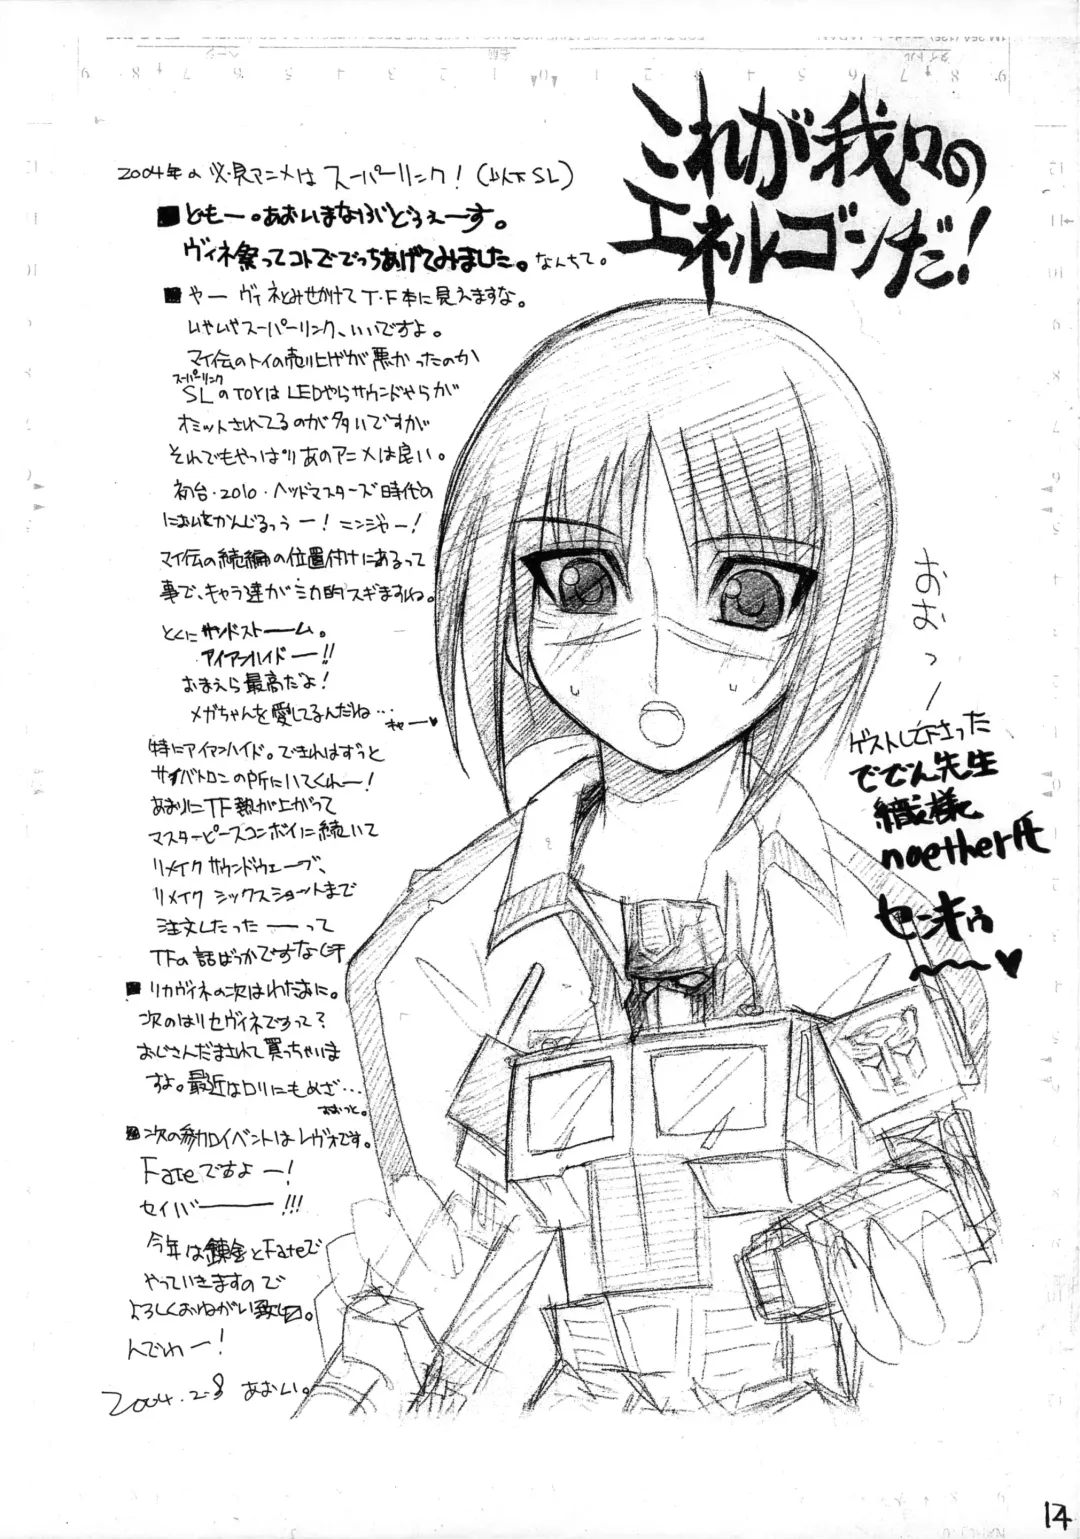 これが我々の
エネルゴンだ！
2004年の必見アニメはスーパーリンク！(以下SL)
■ともー。あおいまなぶどぅえーす。
ヴィネ祭ってコトででっちあげてみました。なんちて。
■やー ヴィネとみせかけてT・F本に見えますな。
いやいやスーパーリンク、いいですよ。
マイ伝のトイの売り上げが悪かったのか
スーパーリンク
SLのTOYはLEDやらサウンドやらが
オミットされてるのが多いですが
それでもやっぱりあのアニメは良い。
初台・2010・ヘッドマスターズ時代の
においをかんじるっうー！ニンジャー！
マイ伝の続編の位置付けにあるって
事で、キャラ達がミカ的スギますね。
とくにサンドストーム。
アイアンハイドー!!
おまえら最高だよ！
メガちゃんを愛してるんだね…
キャー♥
特にアイアンハイド。できればずっと
サイバトロンの所にいてくれー！
あおりにTF熱が上がって
マスターピースコンボイに続いて
リメイクサウンドウェーブ、
リメイクシックスショットまで
注文したったーって
TFの話ばっかですな(汗
■リカヴィネの次はわたおに。
次のはリセヴィネですって？
おじさんだまされて買っちゃいま
すよ。最近はロリにもめざ…
おおっと。
■次の参加イベントはレヴォです。
Fateですよー！
セイバー!!!
今年は錬金とFateで
やっていきますので
よろしくおねがい致〼。
んでわー！
2004.2.8 あおい。
おおっ
ゲストして下さった
ででん先生
織様
noetherπ
センキゥ
〜〜♥
14